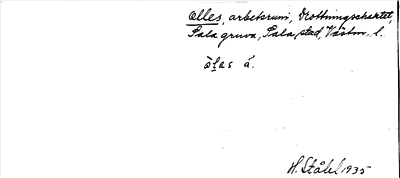 Olles, arbetsrum, Drottningschaktet,
Sala gruva, Sala stad, Västm. l.
H. Ståhl 1935